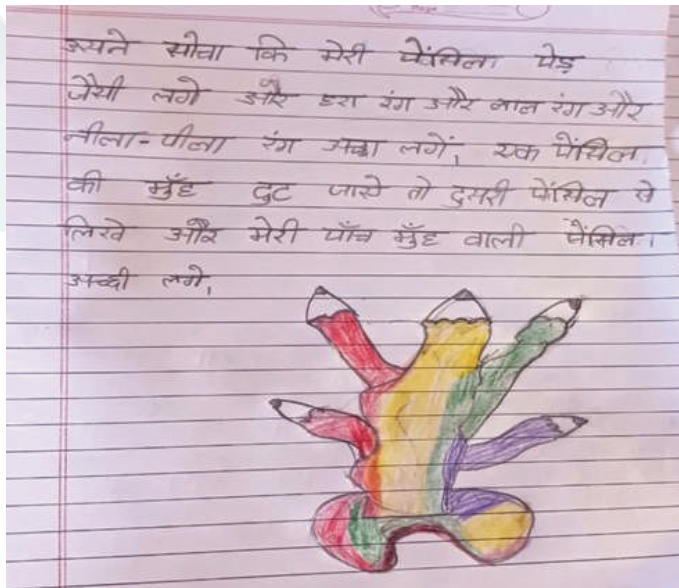 उसने सोचा कि मेरी पेंसिल पेड़
जैसी लगे और हरा रंग और लाल रंग और
नीला-पीला रंग अच्छा लगें, एक पेंसिल
की मुँह टुट जाये तो दुसरी पेंसिल से
लिखे और मेरी पाँच मुँह वाली पेंसिल।
अच्छी लगे,